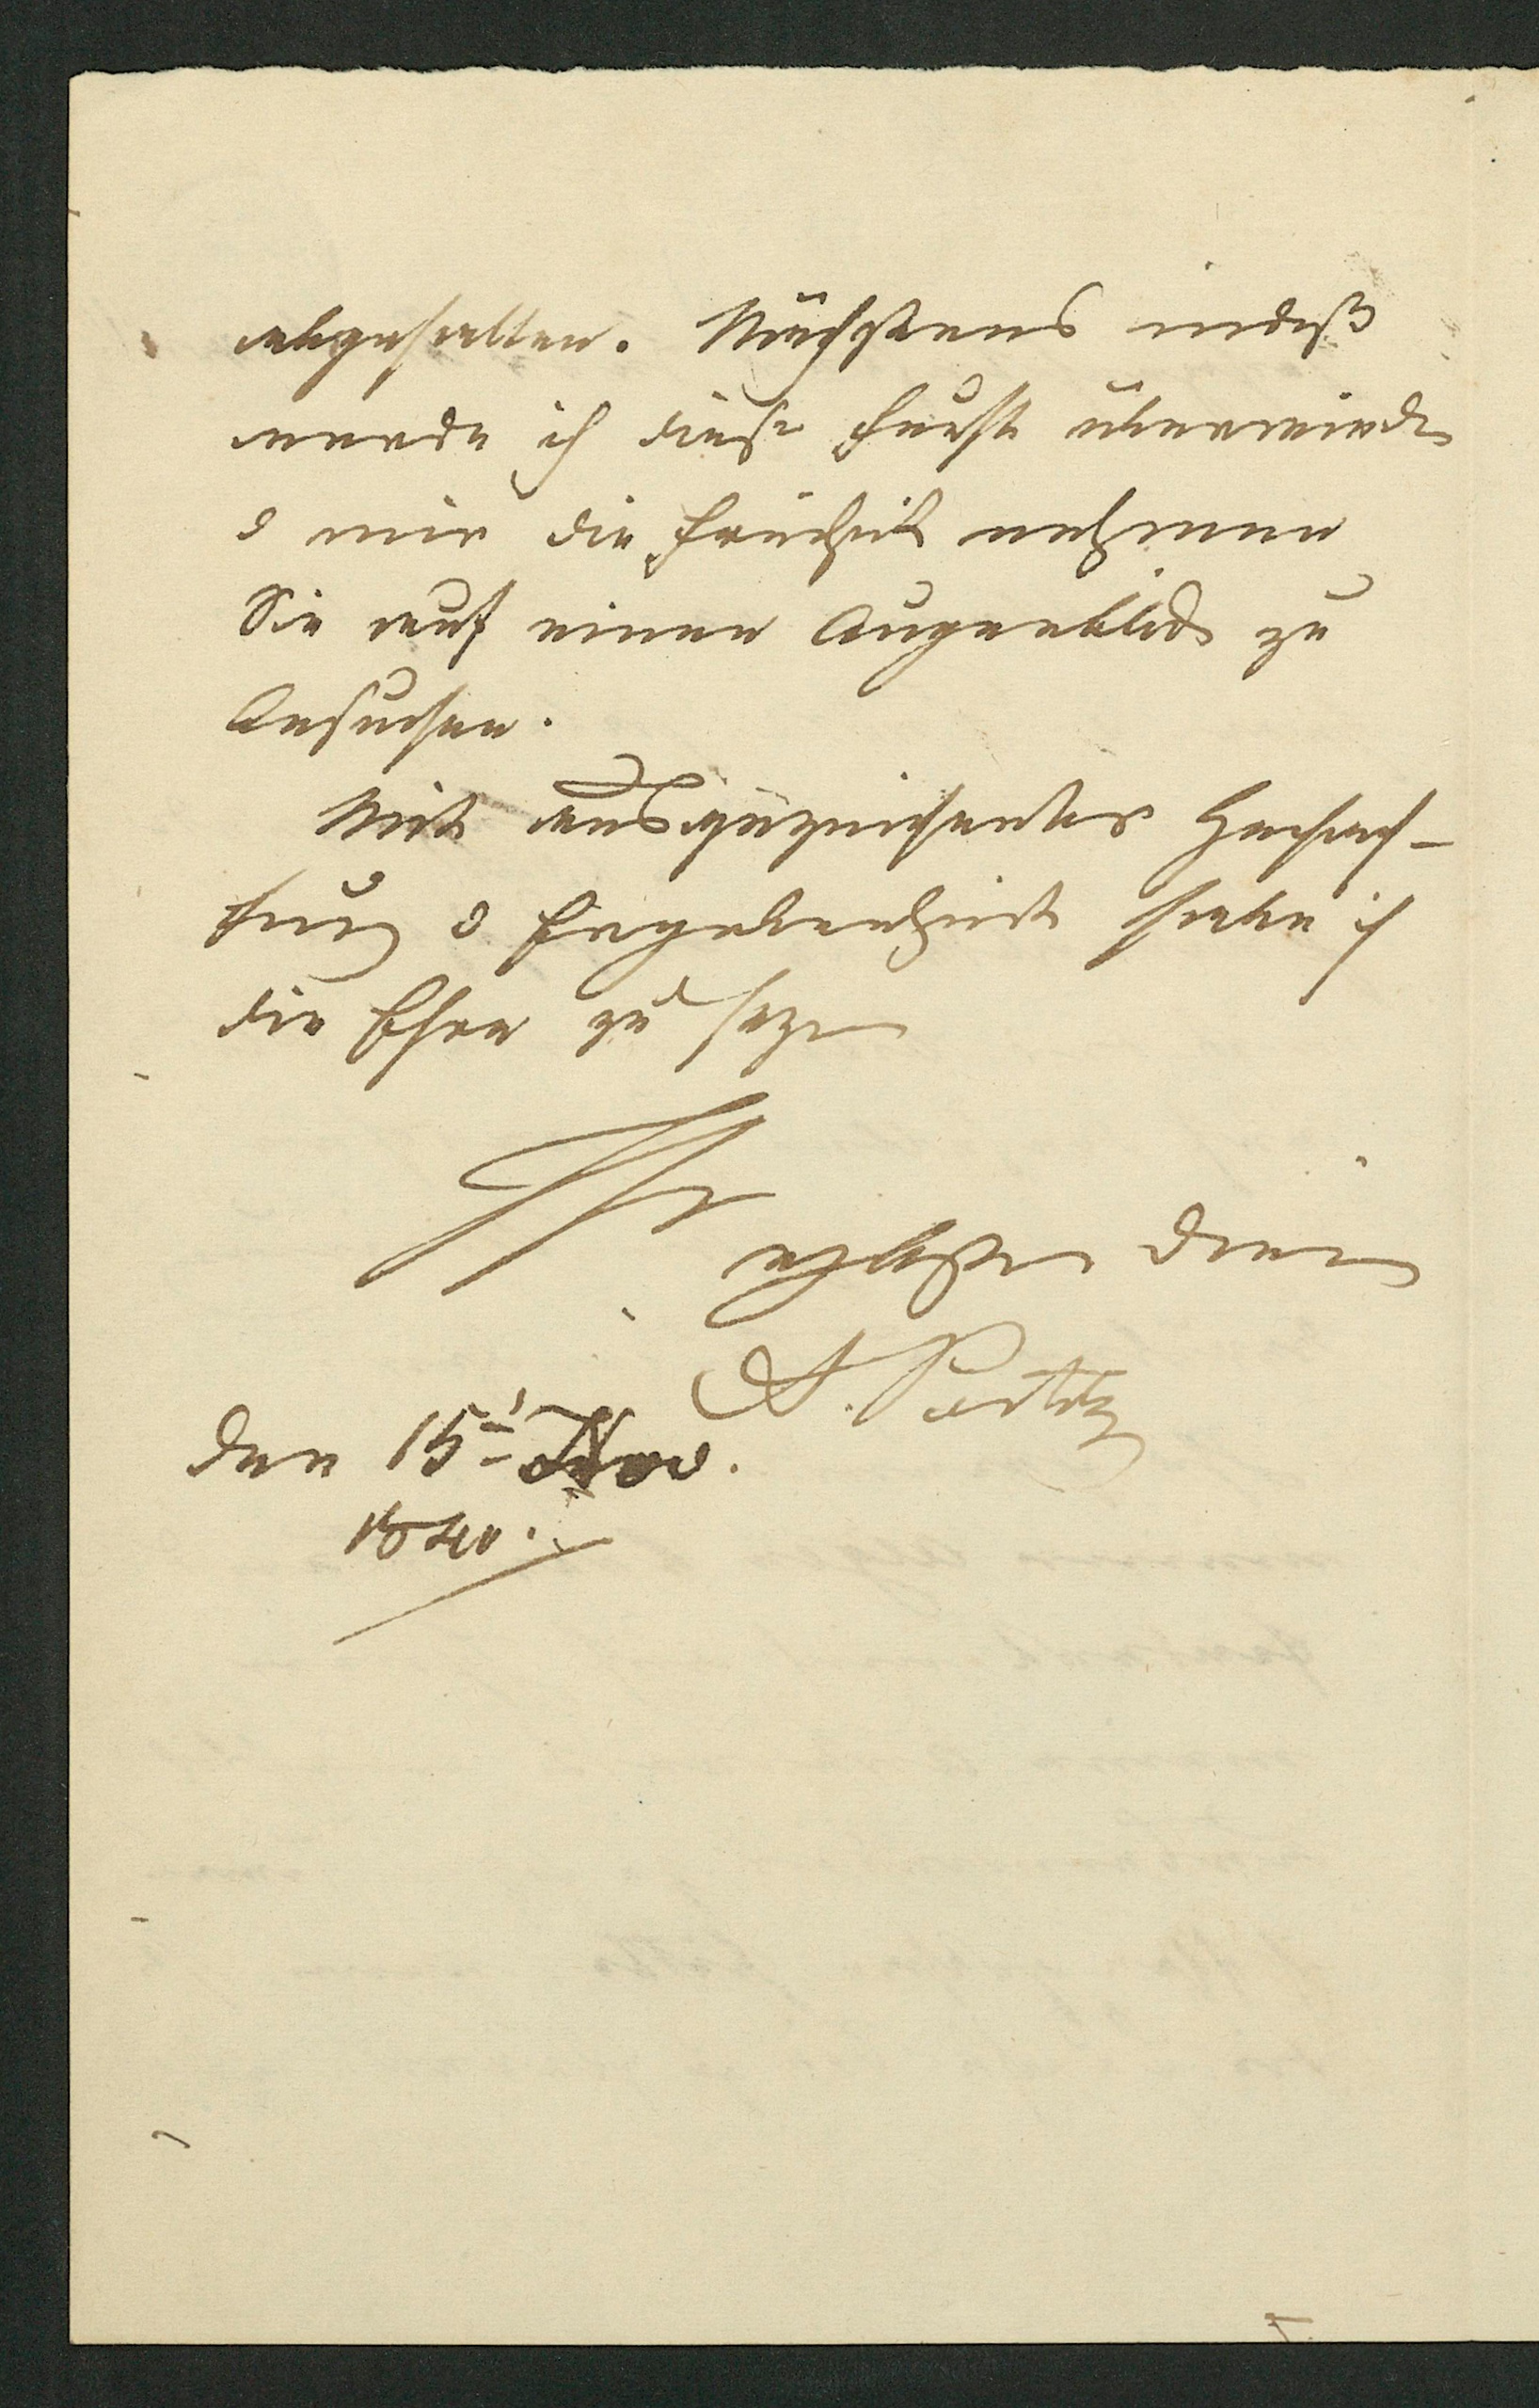 abgehalten. Nächstens indeß
werde ich diese Furcht überwinden
& mir die Freiheit nehmen
Sie auf einen Augenblick zu
besuchen.
Mit ausgezeichneter Hochach-
tung & Ergebenheit habe ich
die Ehre zu sein
Ihr
ergebenster Diener
A.
den 15t Nov.
1840.